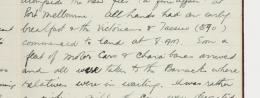 alongside the new pier
Port Melbourne. All hands had an early
breakfast & the Victorians & Tassies (890)
commenced to land at 8 AM. Soon a
fleet of Motor Cars & Charabancs arrived
and all were taken to the Barracks where
relatives were in waiting. It was rather